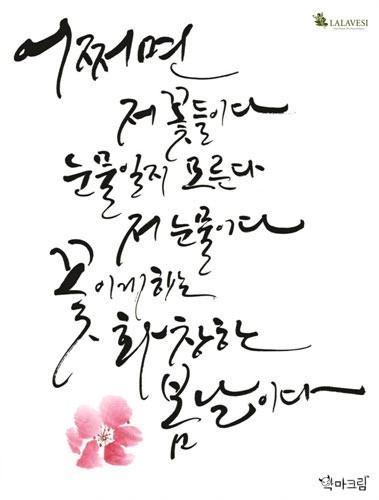 LALAVESI
어쩌면
저 꽃들이 다
눈물일지 모른다
저 눈물이 다
꽃이게 하는
화창한
봄날이다
악마크림